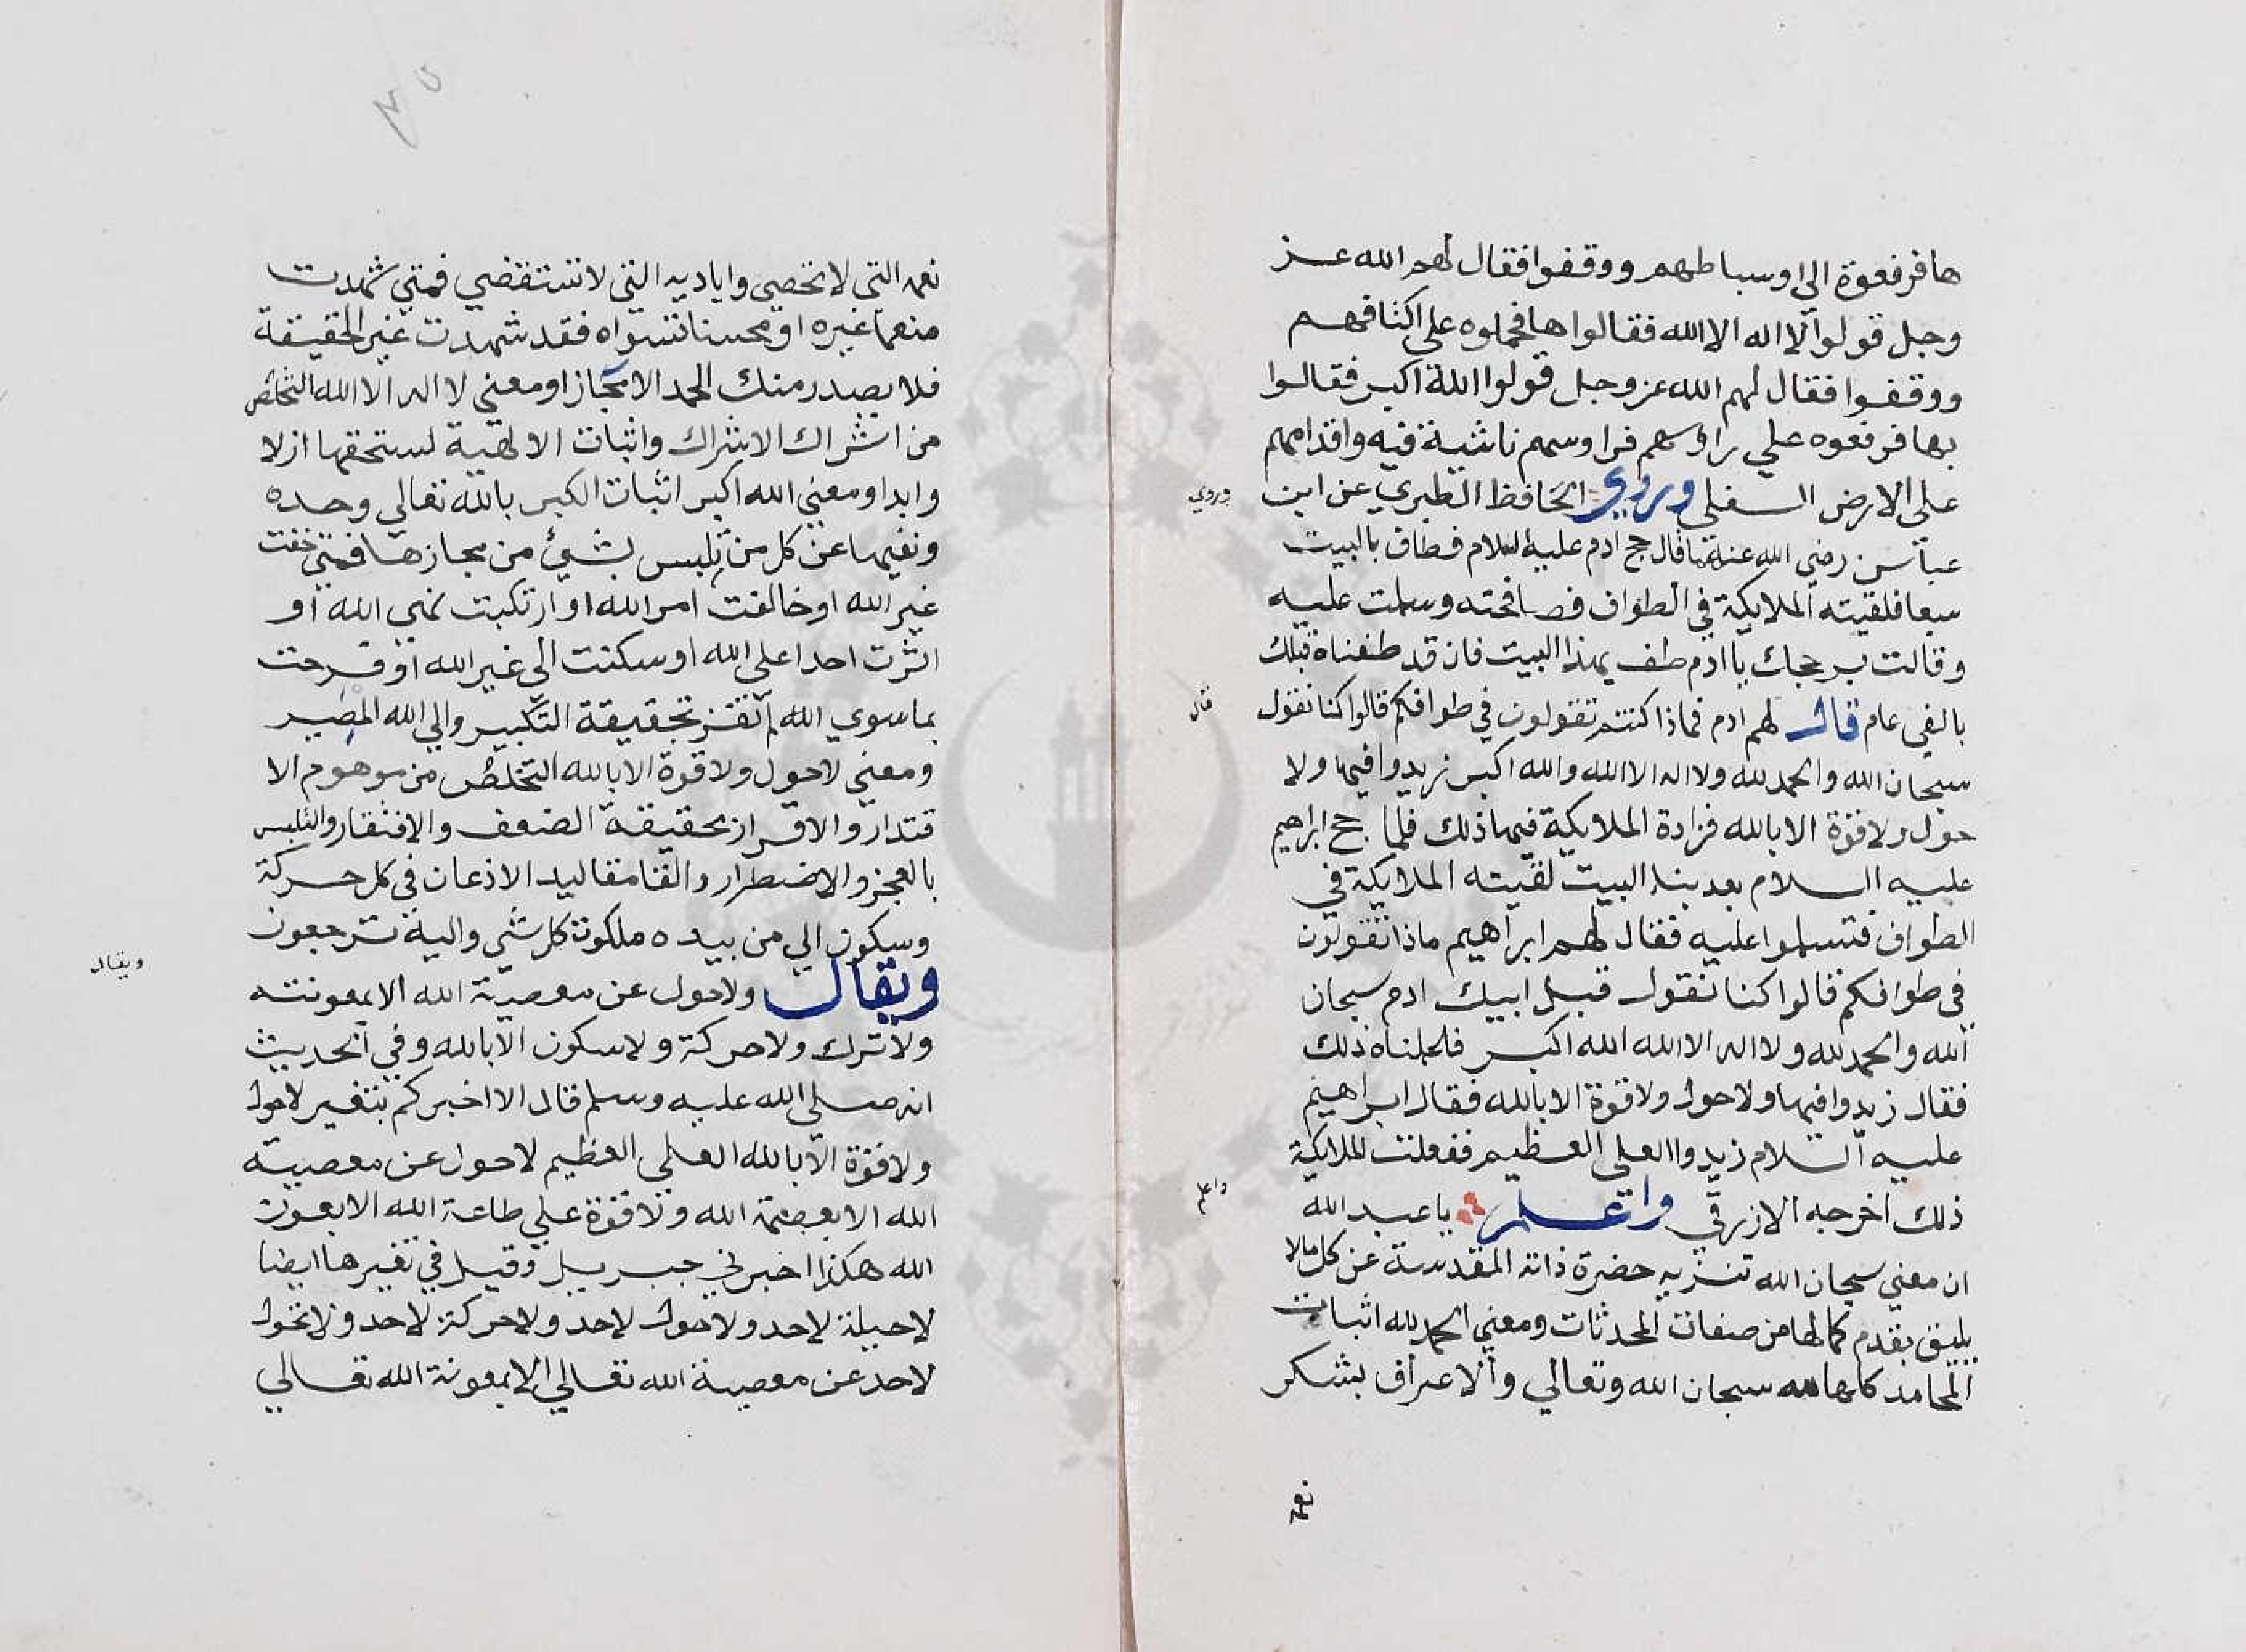 ها فرفعوة الي اوساطهم ووقفوا فقال لهم الله عز
وجل قولوا لا اله الا الله فقالوا ها فحملوه على اكتافهم
ووقفوا فقال لهم الله عز وجل قولوا الله اكبر فقالوا
بها فرفعوه علي راؤسهم فراوسهم ناشية فيه واقدامهم
على الارض السفلي وروي الحافظ الطبري عن ابن
وروي
عباس رضي الله عنهما قال حج ادم عليه السلام فطاف بالبيت
سبعا فلقيته الملايكة في الطواف فصافحته وسلمت عليه
وقالت بر حجك يا ادم طف بهذا البيت فان قد طفناه قبلك
بالفي عام قال لهم ادم فماذا كنتم تقولون في طوافكم قالوا كنا نقول
قال
سبحان الله والحمد لله ولا اله الا الله والله اكبر زيدوا فيها ولا
حول ولا قوة الا بالله فزادة الملايكة فيها ذلك فلما حج ابراهيم
عليه السلام بعد بناء البيت لقيته الملايكة في
الطواف فتسلموا عليه فقال لهم ابراهيم ماذا تقولون
في طوافكم قالوا كنا نقول قبل ابيك ادم سبحان
الله والحمد لله ولا اله الا الله الله اكبر فلعلمناه ذلك
فقال زيدوا فيها ولا حول ولا قوة الا بالله فقال ابراهيم
عليه السلام زيدوا العلى العظيم ففعلت الملايكة
ذلك اخرجه الازرقي واعلم يا عبد الله
واعلم
ان معني سبحان الله تنزيه حضرة ذاته المقدسة عن كل مالا
يليق بقدم كمالها من صفات المحدثات ومعني الحمد لله اثبات
المحامد كلها لله سبحان الله وتعالي والاعراف بشكر
نعمه
٣٥
نعمه التى لا تحصي واياديه التي لا تستقضي فمتي شهدت
منعما غيره او محسنا تسواه فقد شهدت غير الحقيقة
فلا يصدر منك الحمد الا مجازا ومعني لا اله الا الله التخلص
من اشراك الاشراك واثبات الالهية لمستحقها ازلا
وابدا ومعني الله اكبر اثبات الكبر بالله تعالي وحده
ونفيها عن كل من تلبس بشئ من مجازها فمتي خفت
غير الله او خالفت امر الله او ارتكبت نهي الله او
اثرت احدا على الله او سكنت الى غير الله او فرحت
بما سوي الله لم تفز بحقيقة التكبير والي الله المصير
ومعني لا حول ولا قوة الا بالله التخلص من موهوم الا
قتدار والاقرار بحقيقة الضعف والافتقار والتلبس
بالعجز والاضطرار والقا مقاليد الاذعان في كل حركة
وسكون الي من بيده ملكوت كل شي والية ترجعون
ويقال ولا حول عن معصية الله الا بمعونته
ويقال
ولا ترك ولا حركة ولا سكون الا بالله وفي الحديث
انه صلى الله عليه وسلم قال الا اخبركم بتفسير لا حول
ولا قوة الا بالله العلى العظيم لا حول عن معصية
الله الا بعصمة الله ولا قوة علي طاعة الله الا بعون
الله هكذا اخبرني جبريل وقيل في تفسيرها ايضا
لا حيلة لاحد ولا حول لاحد ولا حركة لاحد ولا تحول
لاحد عن معصية الله تعالي الا بمعونة الله تعالي